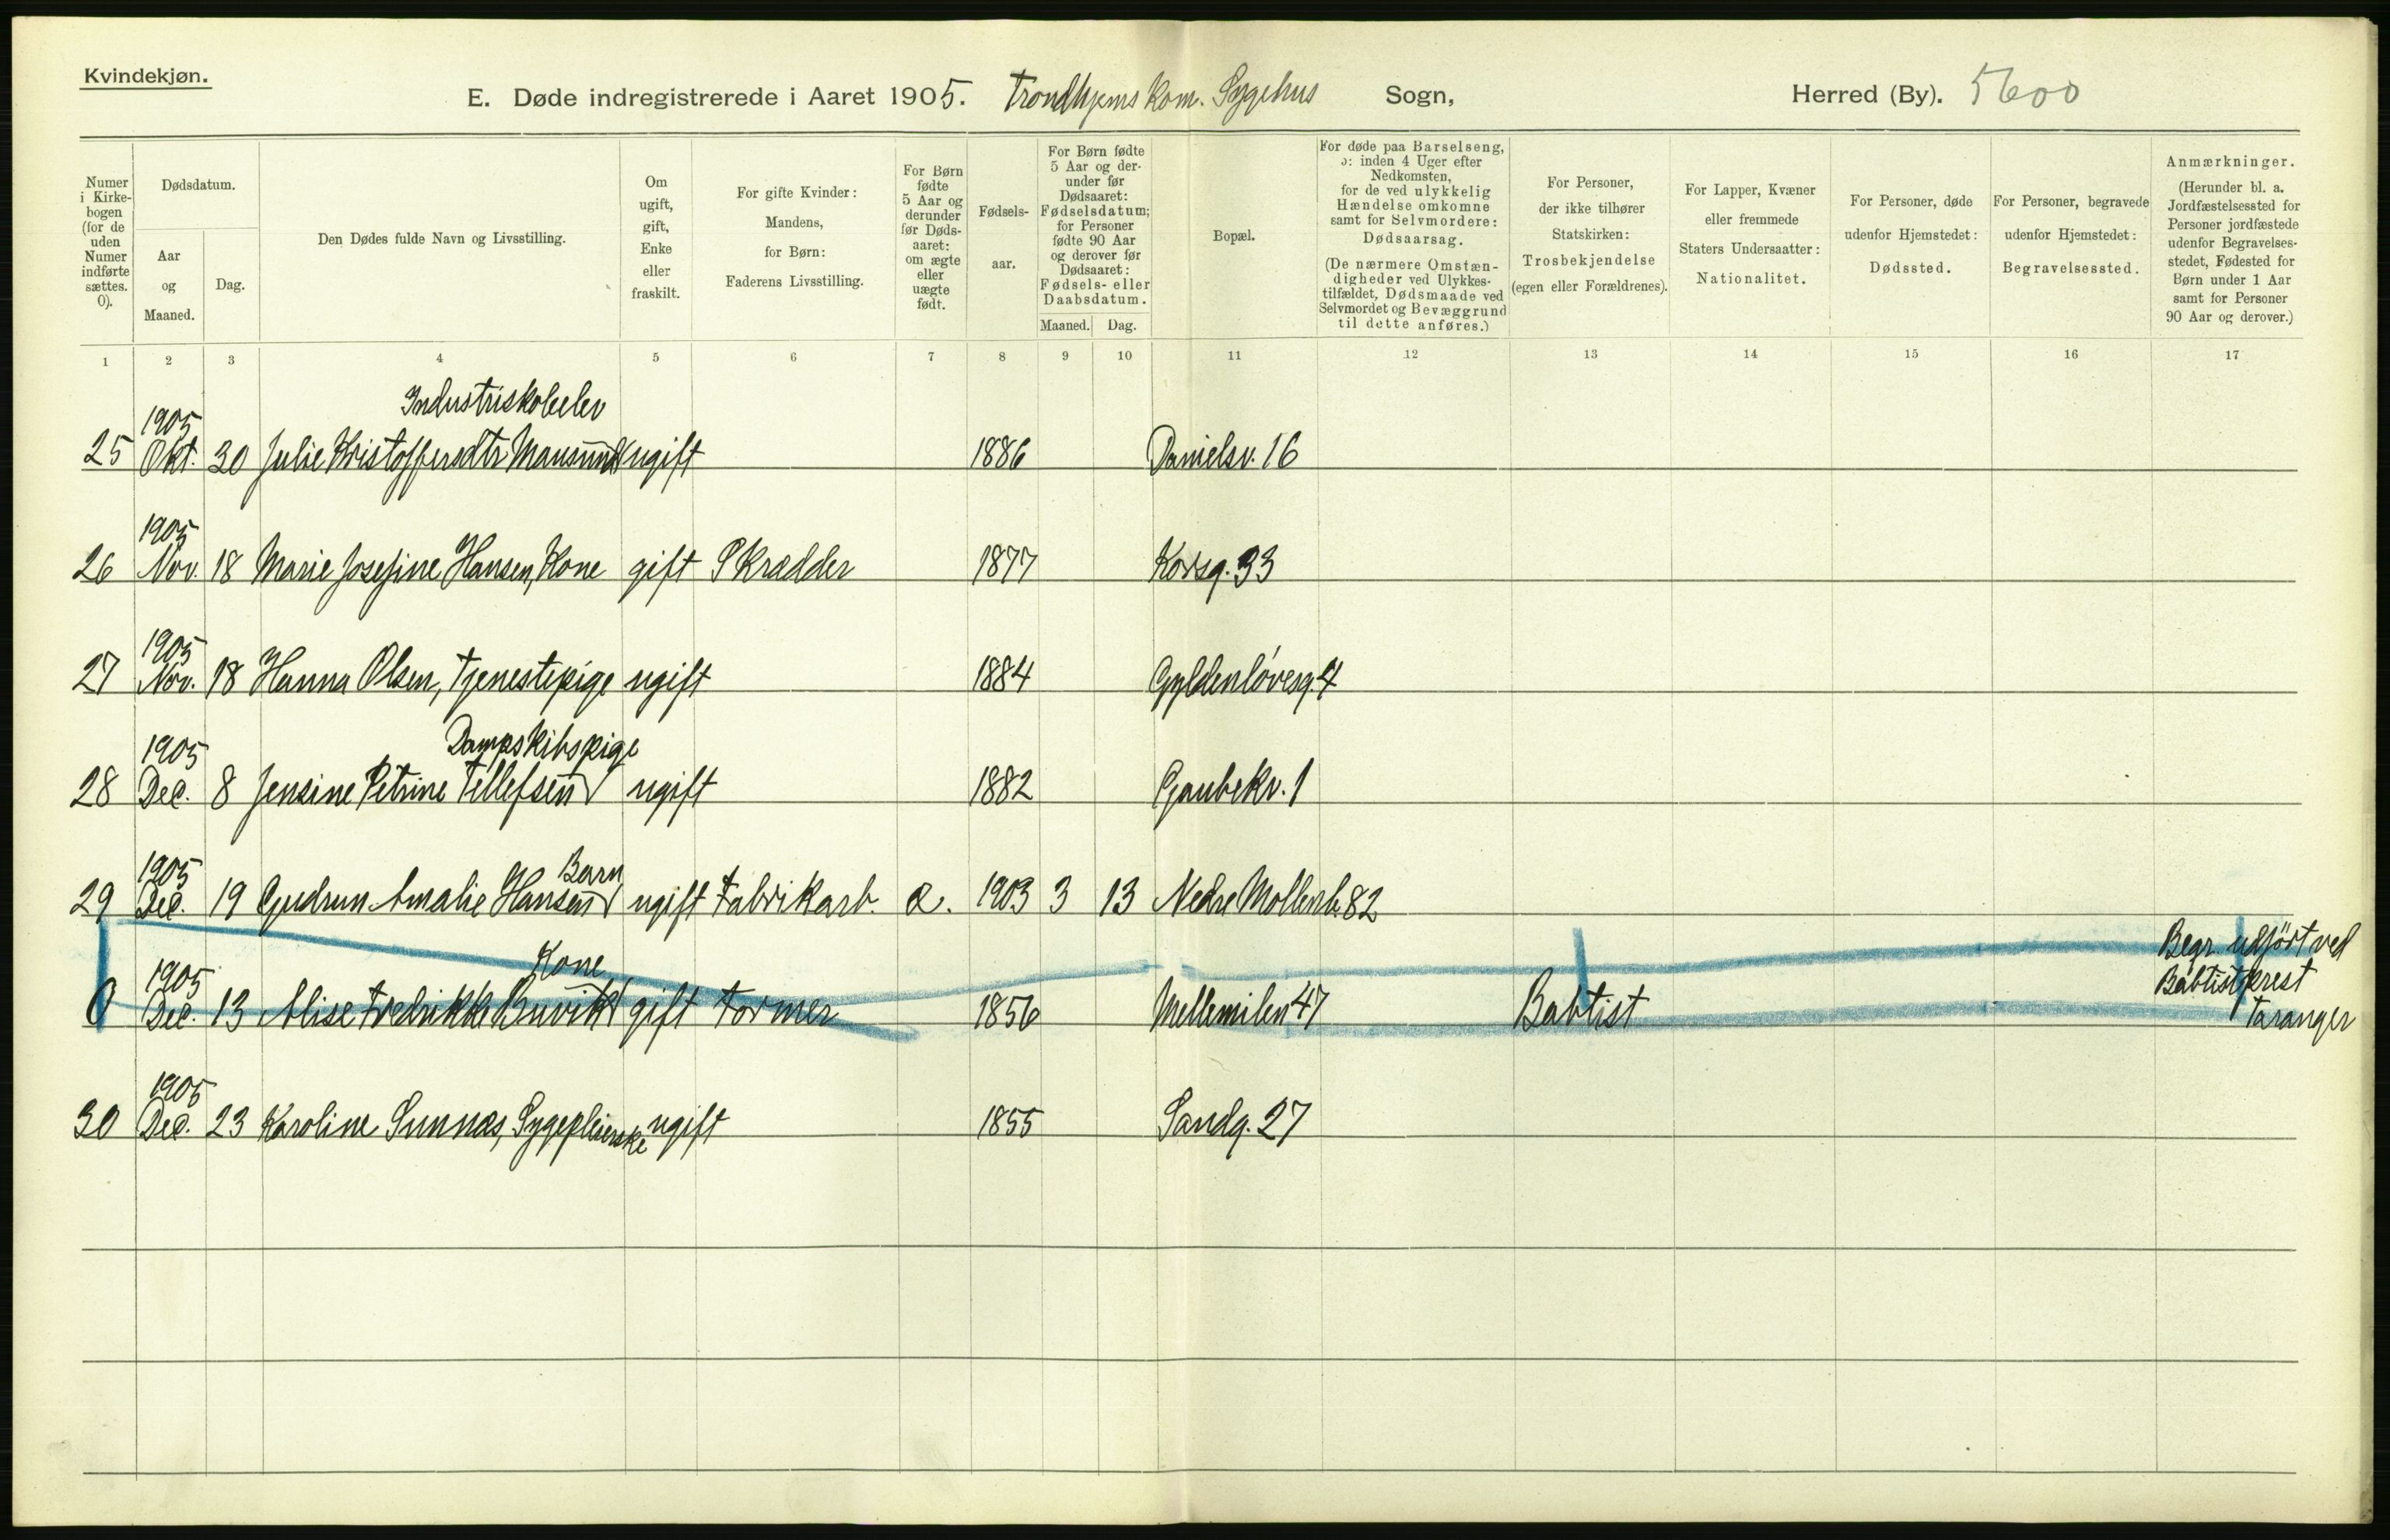 Kvindekjøn.
E. Døde indregistrerede i Aaret 1905. Trondhjems kom. Sygehus Sogn, Herred (By). 5600
Numer i Kirke-bogen (for de uden Numer indførte sættes. 0).
Dødsdatum.
Aar og Maaned.
Dag.
Den Dødes fulde Navn og Livsstilling.
Om ugift, gift, Enke eller fraskilt.
For gifte Kvinder: Mandens, for Børn: Faderens Livsstilling.
For Børn fødte 5 Aar og derunder før Døds-aaret: om ægte eller uægte født.
Fødsels-aar.
For Børn fødte 5 Aar og der-under før Dødsaaret: Fødselsdatum; for Personer fødte 90 Aar og derover før Dødsaaret: Fødsels- eller Daabsdatum.
Maaned. Dag.
Bopæl.
For døde paa Barselseng, ɔ: inden 4 Uger efter Nedkomsten, for de ved ulykkelig Hændelse omkomne samt for Selvmordere: Dødsaarsag. (De nærmere Omstæn-digheder ved Ulykkes-tilfældet, Dødsmaade ved Selvmordet og Bevæggrund til dette anføres.)
For Personer, der ikke tilhører Statskirken: Trosbekjendelse (egen eller Forældrenes).
For Lapper, Kvæner eller fremmede Staters Undersaatter: Nationalitet.
For Personer, døde udenfor Hjemstedet: Dødssted.
For Personer, begravede udenfor Hjemstedet: Begravelsessted.
Anmærkninger. (Herunder bl. a. Jordfæstelsessted for Personer jordfæstede udenfor Begravelses-stedet, Fødested for Børn under 1 Aar samt for Personer 90 Aar og derover.)
1 2 3 4 5 6 7 8 9 10 11 12 13 14 15 16 17
Industriskoleelev
1905
25 Okt. 30 Julie Kristoffersdtr Mausund ugift 1886 Danielsv. 16
1905
26 Nov. 18 Marie Josefine Hansen, Kone gift Skrædder 1877 Korsg. 33
1905
27 Nov. 18 Hanna Olsen, Tjenestepige ugift 1884 Gyldenløvesg. 4
1905 Dampskibspige
28 Dec. 8 Jensine Petrine Tellefsen ugift 1882 Gaubekv. 1
1905 Barn
29 Dec. 19 Gudrun Amalie Hansen ugift Fabrikarb. æ. 1903 3 13 Nedre Møllenb. 82
1905 Kone
0 Dec. 13 Alise Fredrikke Buvik gift Former 1856 Mellemilen 47 Babtist Begr. udført ved
Babtistprest
Taranger
1905
30 Dec. 23 Karoline Sunnæs, Sygepleierske ugift 1855 Sandg. 27